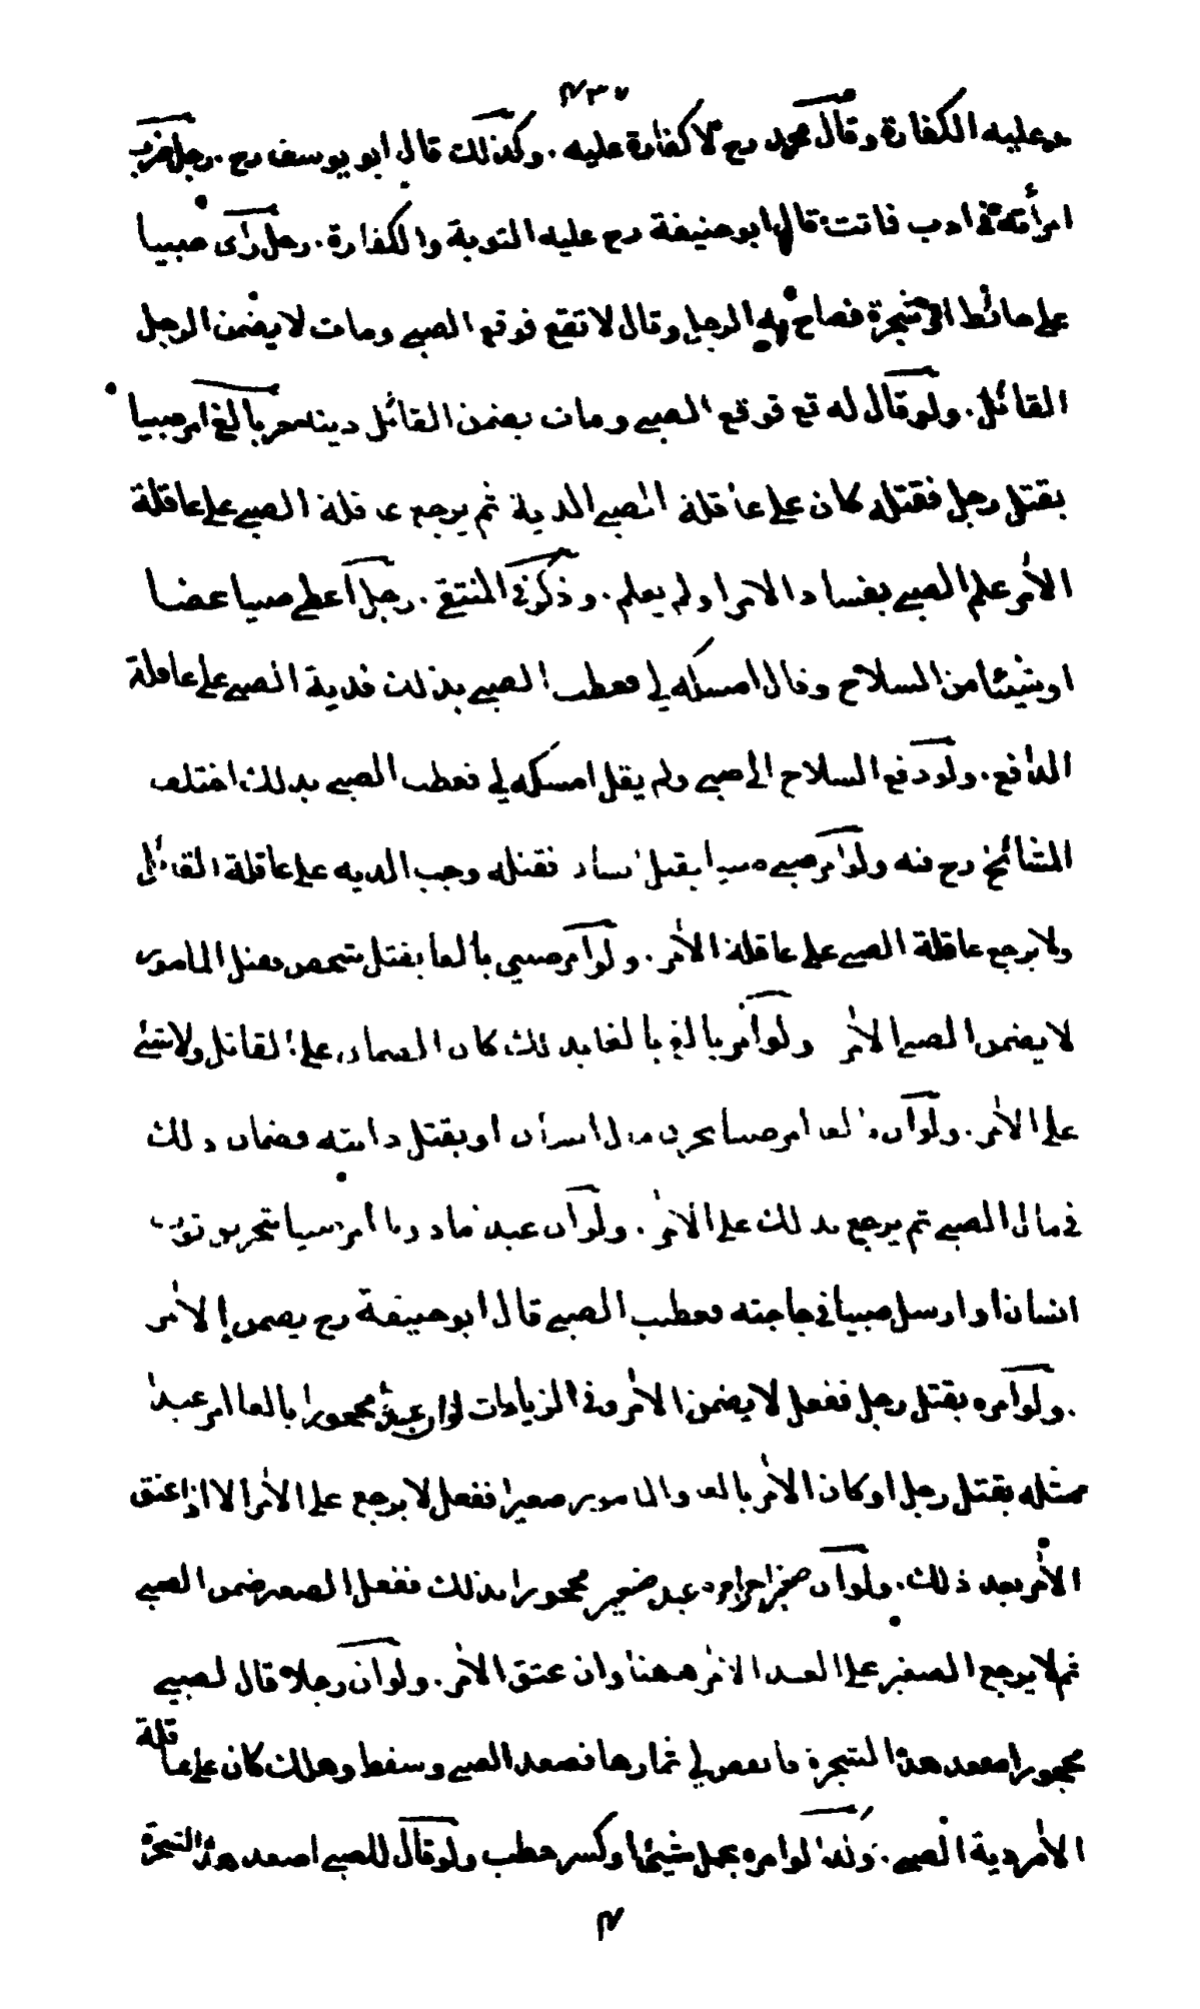 ٤٣٧
وعليه الكفارة وقال محمد رح لا كفارة عليه . وكذلك قال ابو يوسف رح . رجل ضرب
امرأته في ادب فماتت قال ابو حنيفة رح عليه التوبة والكفارة . رجل رأى صبيا
على حائط او شجرة فصاح به الرجل وقال لا تقع فوقع الصبي ومات لا يضمن الرجل
القائل . ولو قال له قع فوقع الصبي ومات يضمن القائل ديته حر بالغ امر صبيا
بقتل رجل فقتله كان على عاقلة الصبي الدية ثم يرجع عاقلة الصبي على عاقلة
الآمر علم الصبي بفساد الامر او لم يعلم . وذكر في المنتقى . رجل اعطى صبيا عصا
او شيئا من السلاح وقال امسكه لي فعطب الصبي بذلك فدية الصبي على عاقلة
الدافع . ولو دفع السلاح الى صبي ولم يقل امسكه لي فعطب الصبي بذلك اختلف
المشائخ رح فيه ولو امر صبي صبيا بقتل انسان فقتله وجب الدية على عاقلة القاتل
ولا يرجع عاقلة الصبي على عاقلة الآمر . ولو امر صبي بالغا بقتل شخص فقتل المامور
لا يضمن الصبي الآمر ولو امر بالغ بالغا بذلك كان الضمان على القاتل ولا شئ
على الآمر . ولو ان بالغا امر صبيا بحرق مال انسان او بقتل دابته فضمان ذلك
في مال الصبي ثم يرجع بذلك على الآمر . ولو ان عبدا ماذونا امر صبيا بتحريق ثوب
انسان او ارسل صبيا في حاجته فعطب الصبي قال ابو حنيفة رح يضمن الآمر
. ولو امره بقتل رجل ففعل لا يضمن الآمر وفي الزيادات لو ان عبدا محجورا بالغا امر عبدا
مثله بقتل رجل او كان الآمر بالغا والمامور صغيرا ففعل لا يرجع على الآمر الا اذا عتق
الآمر بعد ذلك . ولو ان صغيرا حرا امره عبد صغير محجورا بذلك ففعل الصغير ضمن الصبي
ثم لا يرجع الصغير على العبد الآمر ههنا وان عتق الآمر . ولو ان رجلا قال لصبي
محجور اصعد هذه الشجرة فانفض لي ثمارها فصعد الصبي وسقط وهلك كان على عاقلة
الآمر دية الصبي . وكذا لو امره بحمل شيئا او كسر حطب ولو قال للصبي اصعد هذه الشجرة